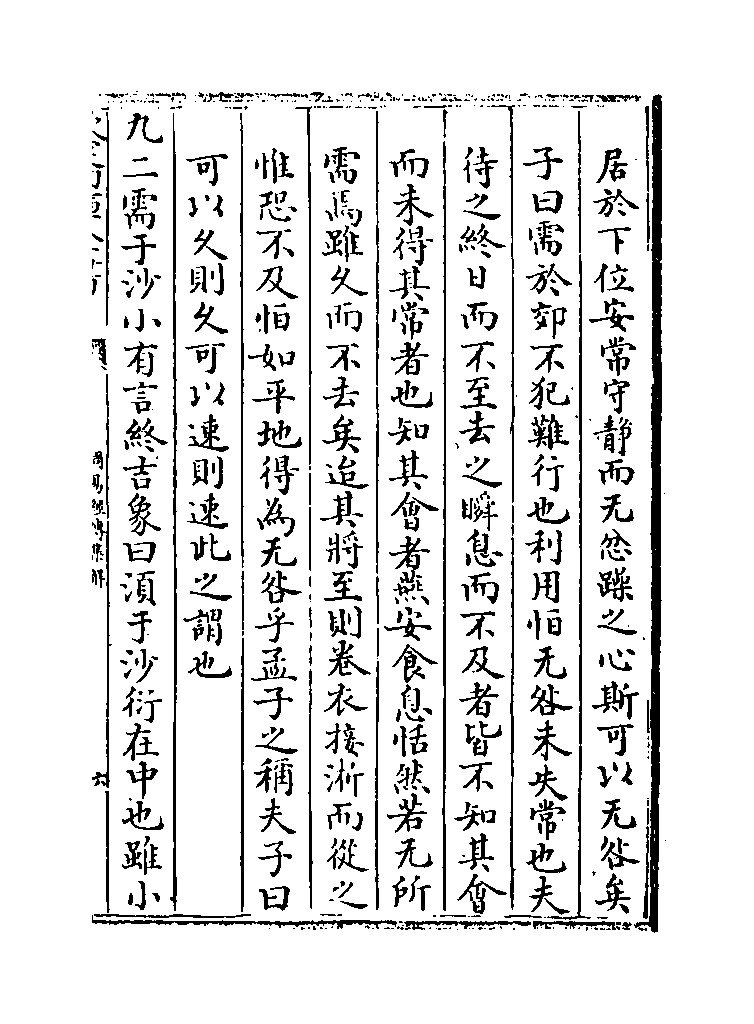 居於下位安常守静而无忿躁之心斯可以无咎矣
子曰需於郊不犯難行也利用恒无咎未失常也夫
待之終日而不至去之瞬息而不及者皆不知其會
而未得其常者也知其會者燕安食息恬然若无所
需焉雖久而不去矣迨其將至則卷衣接淅而從之
惟恐不及怕如平地得為无咎乎孟子之稱夫子曰
可以久則久可以速則速此之謂也
九二需于沙小有言終吉象曰須于沙衍在中也雖小
六